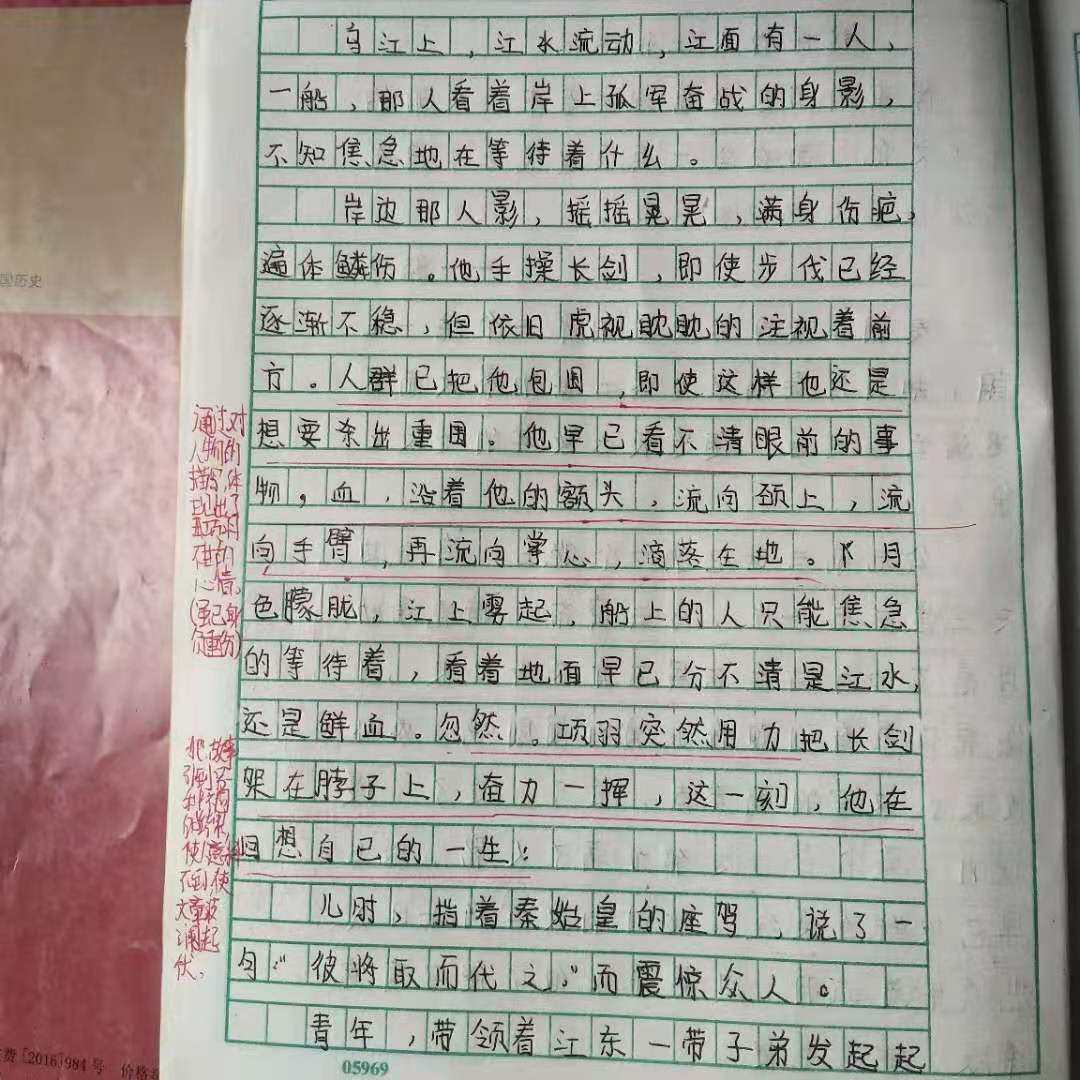 乌江上，江水流动，江面有一人，
一般，那人看着岸上孤军奋战的身影，
不知焦急地在等待着什么。
岸边那人影，摇摇晃晃，满身伤疤，
遍体鳞伤。他手操长剑，即使步伐已经
逐渐不稳，但依旧虎视眈眈的注视着前
方。人群已把他包围，即使这样他还是
想要杀出重围。他早已看不清眼前的事
物。血，沿着他的额头，流向颈上，流
向手臂，再流向掌心，滴落在地。月
色朦胧，江上雾起，船上的人只能焦急
的等待着，看着地面早已分不清是江水，
还是鲜血。忽然。项羽突然用力把长剑
架在脖子上，奋力一挥，这一刻，他在
回想自己的一生：
儿时，指着秦始皇的座驾，说了一
句：“彼将取而代之。”而震惊众人。
青年，带领着江东一带子弟发起起
通过对
人物的
描写，体
现出了
不甘的
心情，
(虽已身
负重伤)
把故事
使
不到，使
文章波
澜起
伏.
国历史
费〔2016〕984号 价格
05969